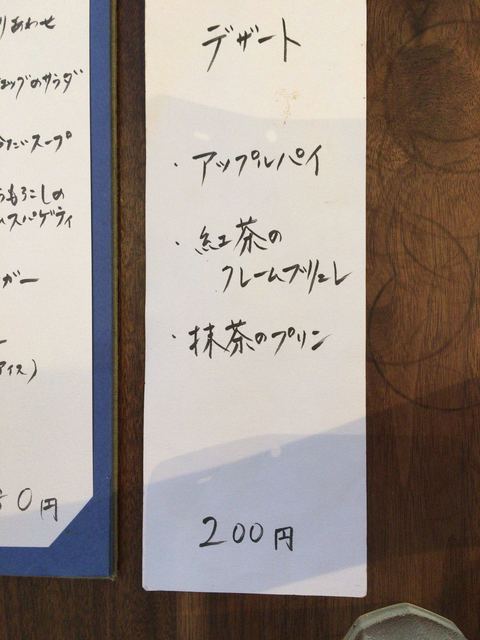 りあわせ
のサラダ
スープ
もろこしの
スパゲティ
ガー
アイス)
50円
デザート
・アップルパイ
・紅茶の
クレームブリュレ
・抹茶のプリン
200円